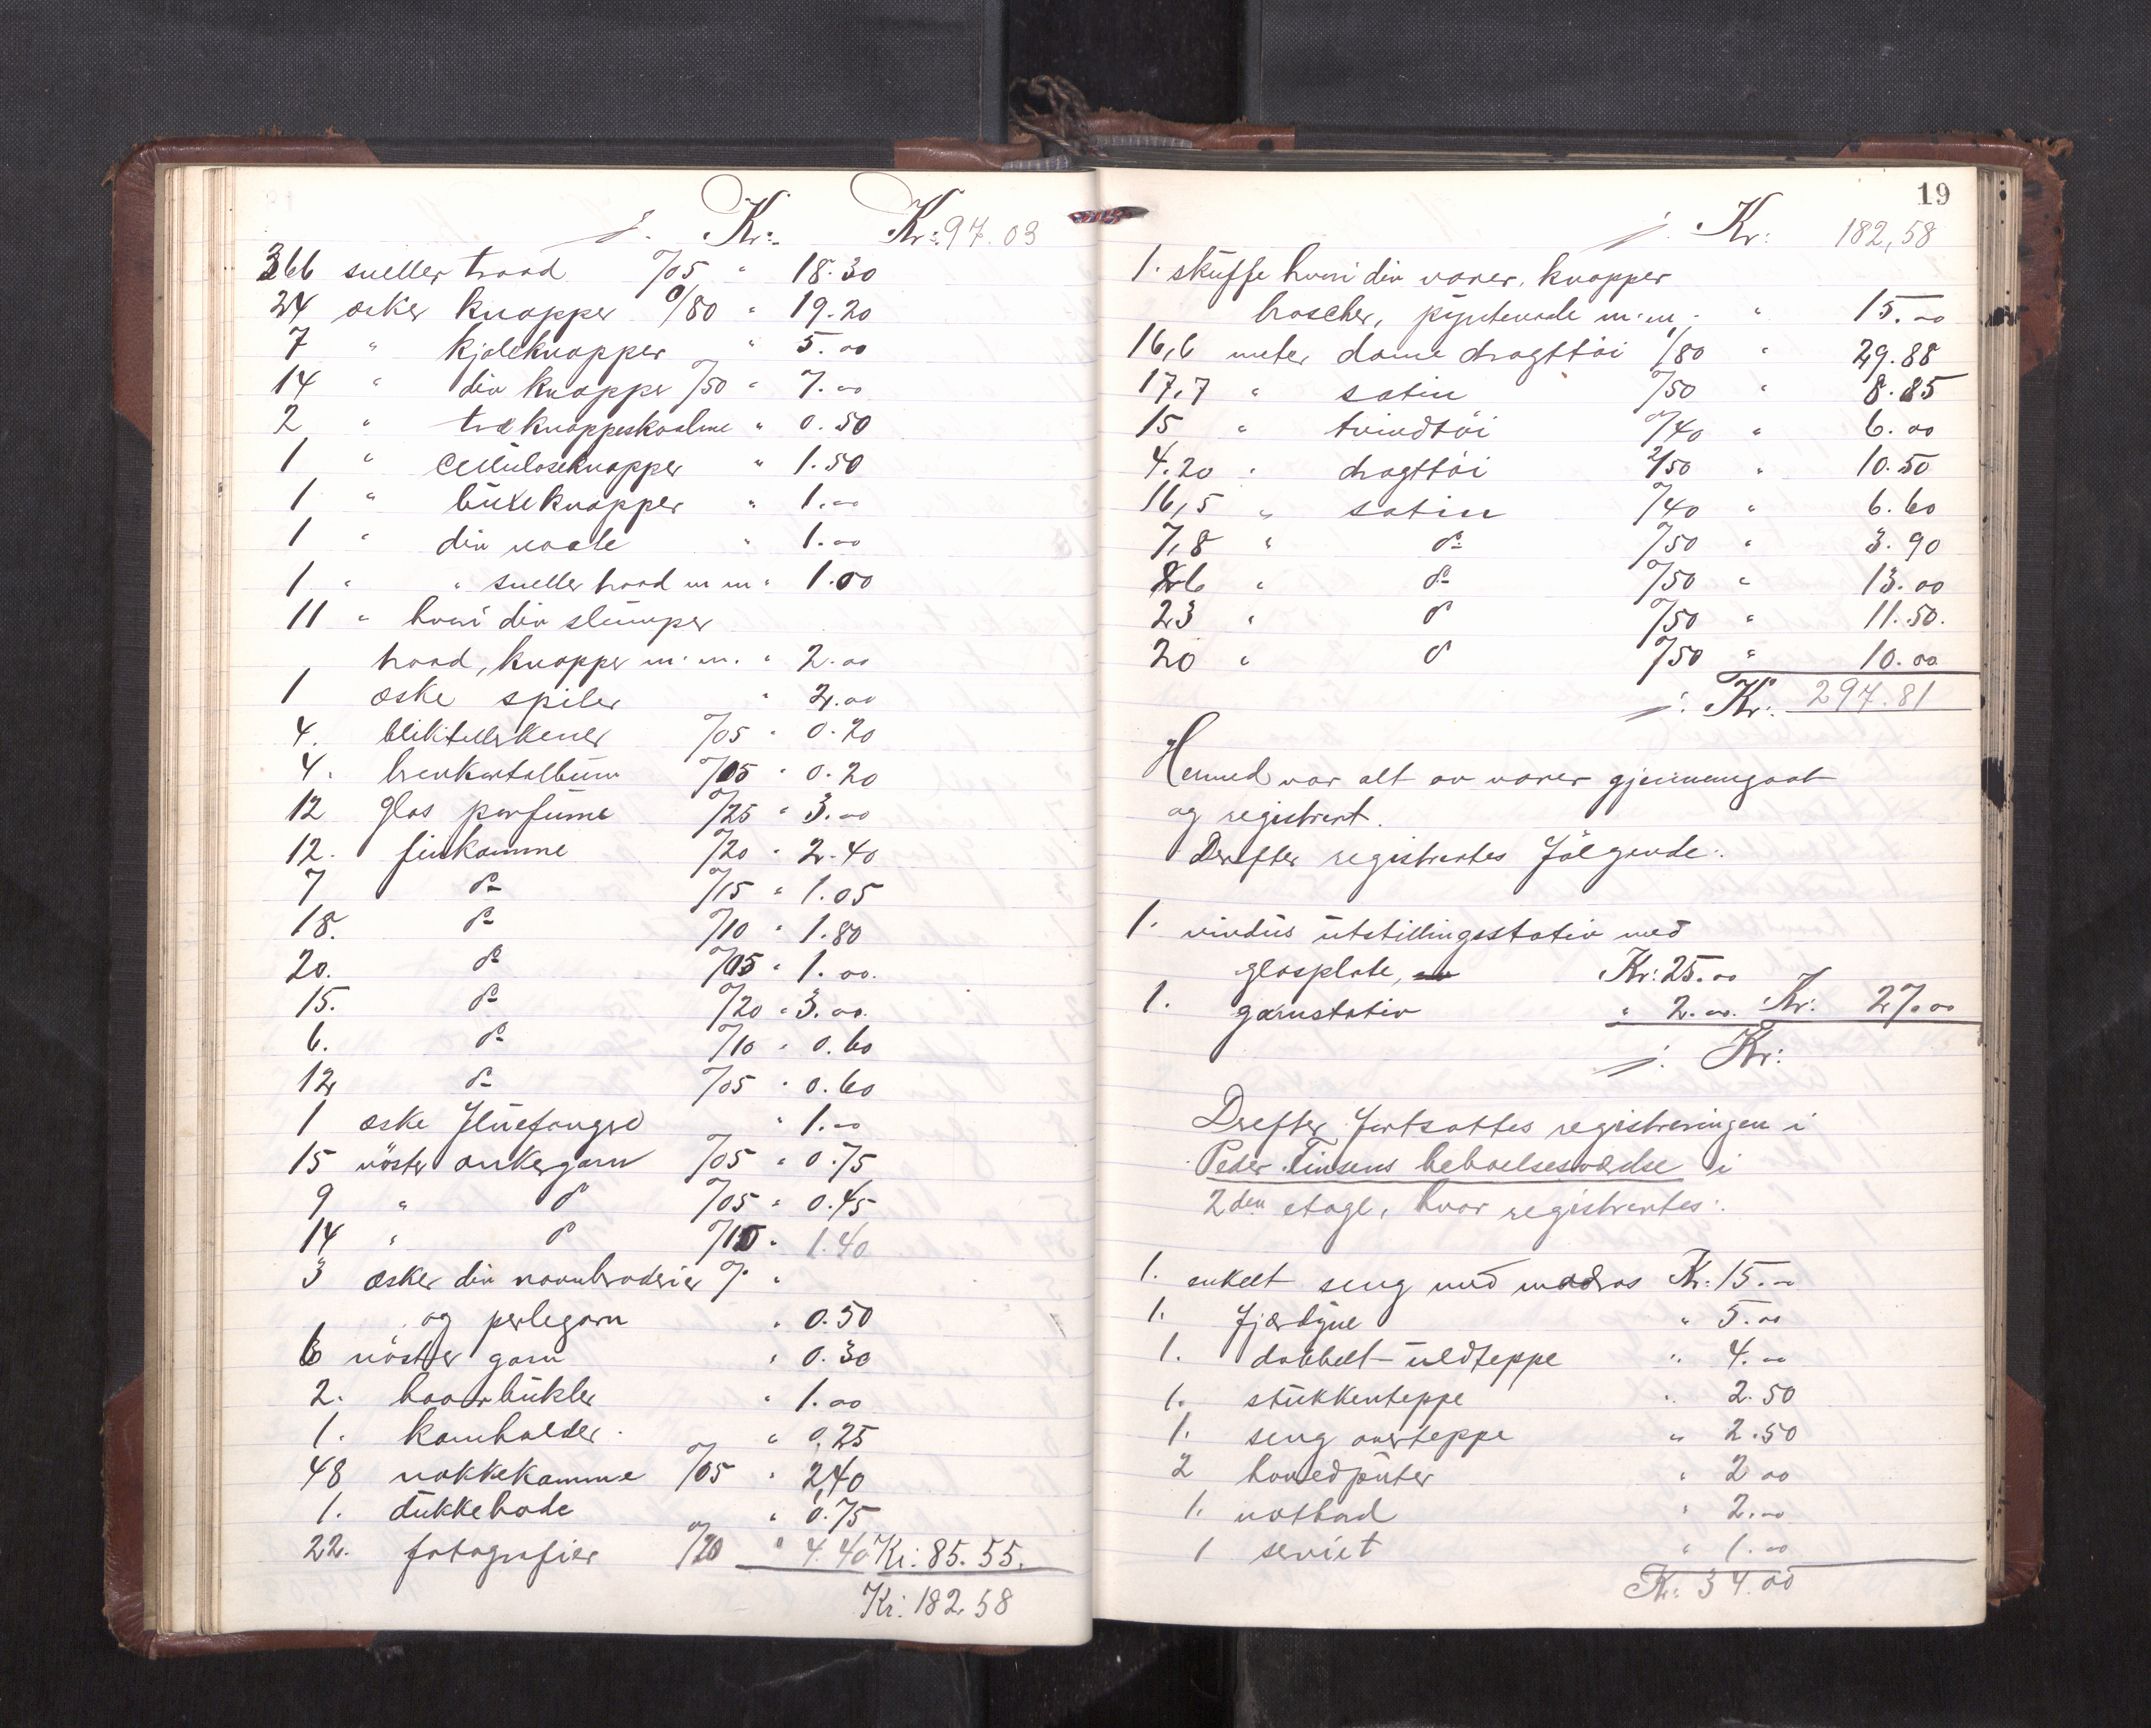 Kr: Kr: 97.03
366 sneller traad %05 " 18.30
24 æsker knapper %80 " 19.20
7 " kjoleknapper " 5.00
14 " div knapper %50 " 7.00
2 " træknappeskaalme " 0.50
1 " celluloseknapper " 1.50
1 " buxeknapper " 1.00
1 " div naale " 1.00
1 " " sneller traad m m " 1.00
11 " hvori div slumper
traad, knapper m.m. " 2.00
1 æske spiler " 2.00
4. bliktallerkener %05 " 0.20
4. brevkortalbum %05 " 0.20
12 glas parfume %25 " 3.00
12. finkamme %20 " 2.40
7 do %15 " 1.05
18. do %10 " 1.80
20. do %05 " 1.00
15. do %20 " 3.00
6. do %10 " 0.60
12 do %05 " 0.60
1 æske fluefangere " 1.00
15 nöster ankergarn %05 " 0.75
9 " do %05 " 0.45
14 " do %10 " 1.40
3 æsker div navnbroderier % "
og perlegarn " 0.50
6 nöster garn " 0.30
2. haarbukler " 1.00
1. kamholder " 0,25
48 nakkekamme %05 " 2,40
1. dukkehode " 0.75
22. fotografier %20 " 4.40 Kr: 85.55.
Kr: 182.58
19
Kr: 182,58
1. skuffe hvori div varer, knapper
broscher, pyntenaale m.m. " 15.00
16,6 meter dame dragttöi 1/80 " 29.88
17,7 " satin %50 " 8.85
15 " tvindtöi %40 " 6.00
4.20 " dragttöi 2/50 " 10.50
16,5 " satin %40 " 6.60
7,8 " do %50 " 3.90
26 " do %50 " 13.00
23 " do %50 " 11.50.
20 " do %50 " 10.00
Kr: 297.81
Hermed var alt av varer gjennemgaat
og registrert.
Derefter registrertes følgende:
1. vindus utstillingsstativ med
glasplate, Kr: 25.00
1. garnstativ " 2.00. Kr: 27.00
Kr:
Derefter fortsattes registreringen i
Peder Tinsens beboelsesværelse i
2den etage, hvor registrertes:
1. enkelt seng med madras Kr: 15.00
1. fjærdyne " 5.00
1. dobbelt uldteppe " 4.00
1. stukkenteppe " 2.50
1. seng overteppe " 2.50
2 hovedputer " 2 00
1. natbord " 2.00
1 serviet " 1.00
Kr: 34.00